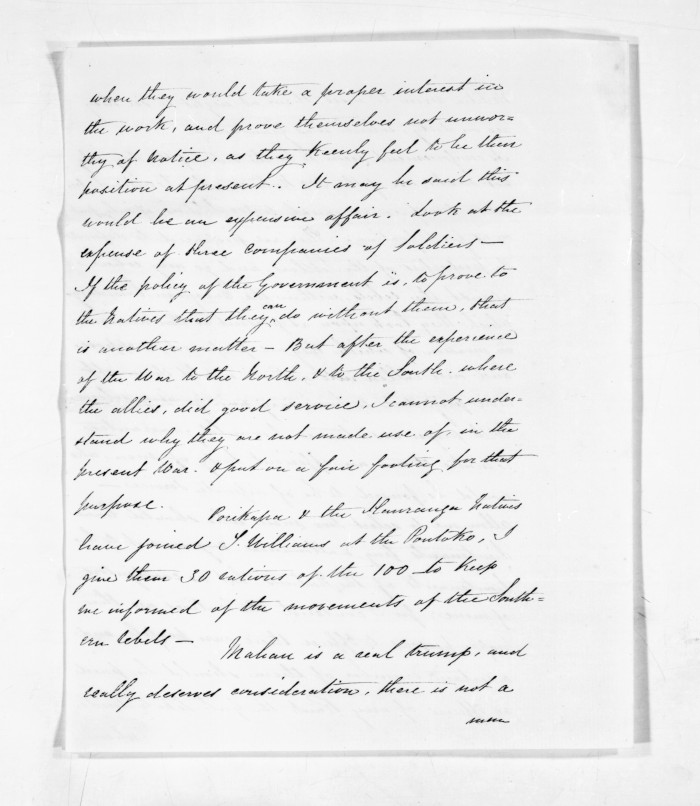 when they would take a proper interest in
the work, and prove themselves not unwor=
thy of notice, as they Keenly feel to be their
position at present. It may be said this
would be an expensive affair. Look at the
expense of three companies of Soldiers —
If the policy of the Government is, to prove to
the Natives that they can do without them, that
is another matter — But after the experience
of the War to the North, & to the South. where
the allies, did good service, I cannot under=
stand why they are not made use of. in the
present War. & put on a fair footing for that
purpose. Porikapa & the Hauranga Natives
have joined S. Williams at the Poutoko, I
give them 30 rations of the 100 to Keep
me informed of the movements of the South=
ern rebels — Mahau is a real trump, and
really deserves consideration, there is not a
man